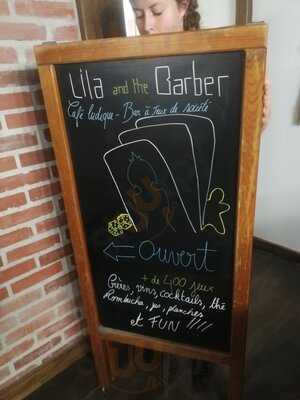 Lila and the Barber
Café ludique - Bar à jeux de société
Ouvert
+ de 400 jeux
Bières, vins, cocktails, thé
Kombucha, jus, planches
et FUN !!!!